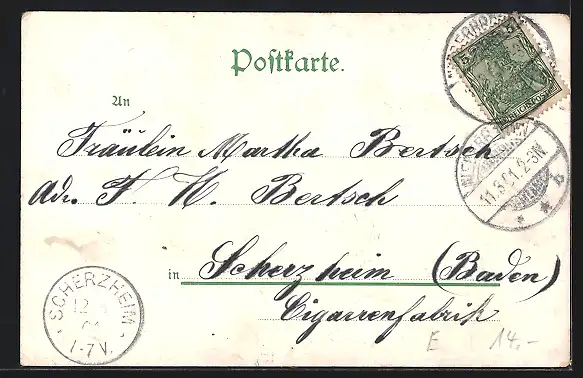 Postkarte.
An
Fräulein Martha Bertsch
Adr. F. K. Bertsch
in Scherzheim (Baden)
Cigarrenfabrik
5 5
11.3.01.2-3N
b
SCHERZHEIM
12
1-7V.
E 14.-